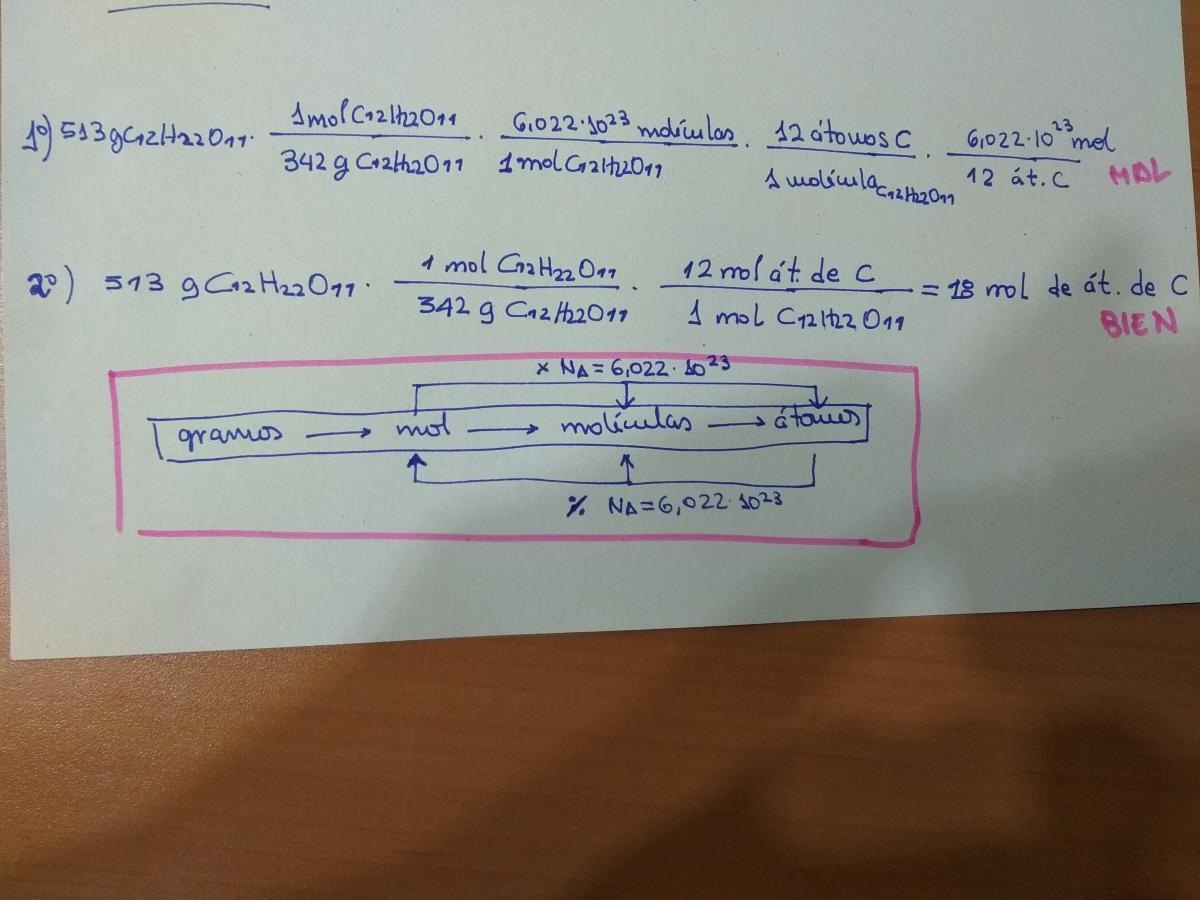 1º) 513 g C12H22O11 · 1 mol C12H22O11 / 342 g C12H22O11 · 6,022·10²³ moléculas / 1 mol C12H22O11 · 12 átomos C / 1 molécula C12H22O11 · 6,022·10²³ mol / 12 át. C MAL
2º) 513 g C12H22O11 · 1 mol C12H22O11 / 342 g C12H22O11 · 12 mol át. de C / 1 mol C12H22O11 = 18 mol de át. de C BIEN
× NA = 6,022·10²³
gramos → mol → moléculas → átomos
% NA = 6,022·10²³